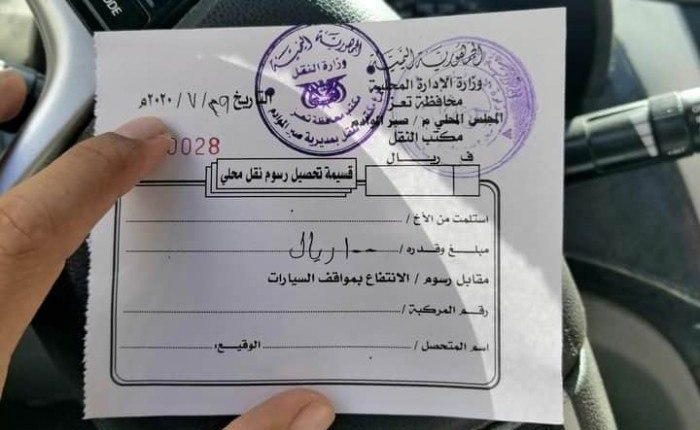 الجمهورية اليمنية
وزارة الإدارة المحلية
محافظة تعز
المجلس المحلي م / صبر الموادم
مكتب النقل
ف ريال
الجمهورية اليمنية
وزارة النقل
التاريخ ٢٩ / ٧ / ٢٠٢٠م
0028
قسيمة تحصيل رسوم نقل محلي
استلمت من الأخ /
مبلغ وقدره / ١٠٠ ريال
مقابل رسوم / الانتفاع بمواقف السيارات
رقم المركبة /
اسم المتحصل / الوقيع: